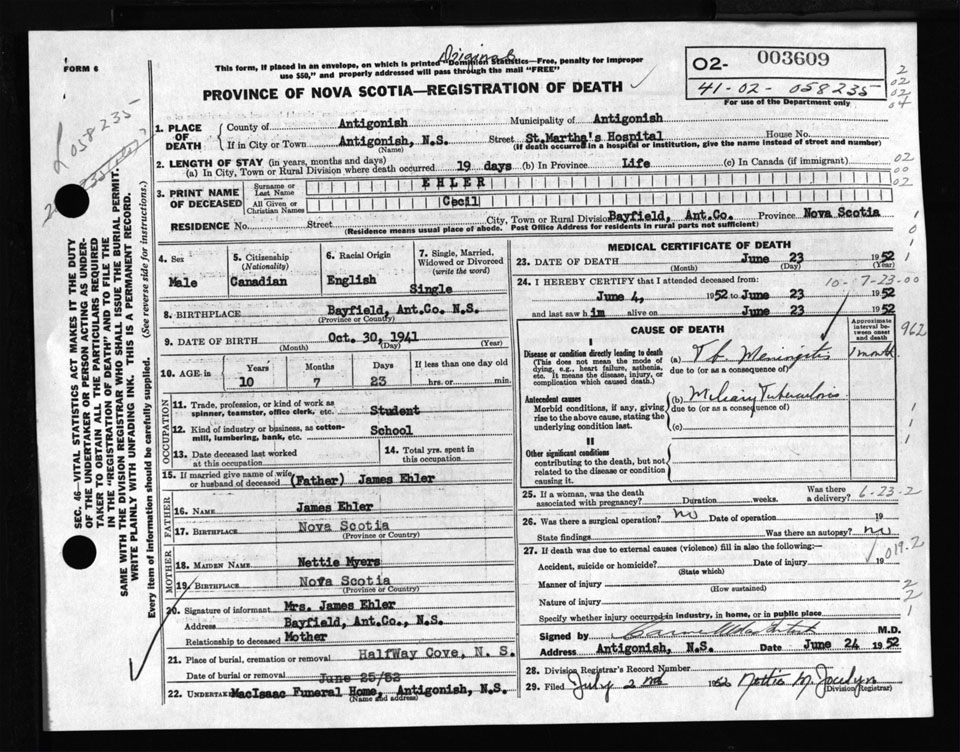 FORM 6
Original
This form, if placed in an envelope, on which is printed "Dominion Statistics—Free, penalty for improper
use $50," and properly addressed will pass through the mail "FREE"
PROVINCE OF NOVA SCOTIA—REGISTRATION OF DEATH
O2- 003609
41-02-058235
For use of the Department only
2
02
02
04
058235
SEC. 46—VITAL STATISTICS ACT MAKES IT THE DUTY
OF THE UNDERTAKER OR PERSON ACTING AS UNDER-
TAKER TO OBTAIN ALL THE PARTICULARS REQUIRED
IN THE "REGISTRATION OF DEATH" AND TO FILE THE
SAME WITH THE DIVISION REGISTRAR WHO SHALL ISSUE THE BURIAL PERMIT.
WRITE PLAINLY WITH UNFADING INK. THIS IS A PERMANENT RECORD.
Every item of information should be carefully supplied. (See reverse side for instructions.)
1. PLACE OF DEATH
County of Antigonish Municipality of Antigonish
If in City or Town Antigonish, N.S. Street St.Martha's Hospital House No.
(Name) (If death occurred in a hospital or institution, give the name instead of street and number)
2. LENGTH OF STAY (in years, months and days)
(a) In City, Town or Rural Division where death occurred 19 days (b) In Province Life (c) In Canada (if immigrant)
02
00
02
3. PRINT NAME OF DECEASED
Surname or Last Name EHLER
All Given or Christian Names Cecil
RESIDENCE No. Street City, Town or Rural Division Bayfield, Ant.Co. Province Nova Scotia
(Residence means usual place of abode. Post Office Address for residents in rural parts not sufficient)
4. Sex
Male
5. Citizenship (Nationality)
Canadian
6. Racial Origin
English
7. Single, Married, Widowed or Divorced (write the word)
Single
8. BIRTHPLACE Bayfield, Ant.Co. N.S.
(Province or Country)
9. DATE OF BIRTH Oct. 30, 1941
(Month) (Day) (Year)
10. AGE in Years Months Days If less than one day old
10 7 23 hrs. or min.
OCCUPATION
11. Trade, profession, or kind of work as
spinner, teamster, office clerk, etc. Student
12. Kind of industry or business, as cotton-
mill, lumbering, bank, etc. School
13. Date deceased last worked at this occupation
14. Total yrs. spent in this occupation
15. If married give name of wife
or husband of deceased (Father) James Ehler
FATHER
16. NAME James Ehler
17. BIRTHPLACE Nova Scotia
(Province or Country)
MOTHER
18. MAIDEN NAME Nettie Myers
19. BIRTHPLACE Nova Scotia
(Province or Country)
20. Signature of informant Mrs. James Ehler
Address Bayfield, Ant.Co., N.S.
Relationship to deceased Mother
21. Place of burial, cremation or removal HalfWay Cove, N.S.
Date of burial or removal June 25/52
22. UNDERTAKER MacIsaac Funeral Home, Antigonish, N.S.
(Name and address)
MEDICAL CERTIFICATE OF DEATH
23. DATE OF DEATH June 23 1952
(Month) (Day) (Year)
24. I HEREBY CERTIFY that I attended deceased from: 10-7-23-00
June 4, 1952 to June 23 1952
and last saw him alive on June 23 1952
CAUSE OF DEATH
Approximate interval between onset and death
962
I
Disease or condition directly leading to death
(This does not mean the mode of
dying, e.g., heart failure, asthenia,
etc. It means the disease, injury, or
complication which caused death.)
(a) Tb Meningitis 1 month
due to (or as a consequence of)
Antecedent causes
Morbid conditions, if any, giving
rise to the above cause, stating the
underlying condition last.
(b) Miliary Tuberculosis
due to (or as a consequence of)
(c)
II
Other significant conditions
contributing to the death, but not
related to the disease or condition
causing it.
25. If a woman, was the death associated with pregnancy? Duration weeks. Was there a delivery? 6-23-2
26. Was there a surgical operation? no Date of operation 19
State findings Was there an autopsy? no
27. If death was due to external causes (violence) fill in also the following:—
Accident, suicide or homicide? Date of injury 19
(State which)
019.2
Manner of injury
(How sustained)
Nature of injury
Specify whether injury occurred in industry, in home, or in public place
2
2
1
Signed by M.D.
Address Antigonish, N.S. Date June 24 1952
28. Division Registrar's Record Number
29. Filed July 2nd 1952 Nettie M. Jocelyn
(Division Registrar)